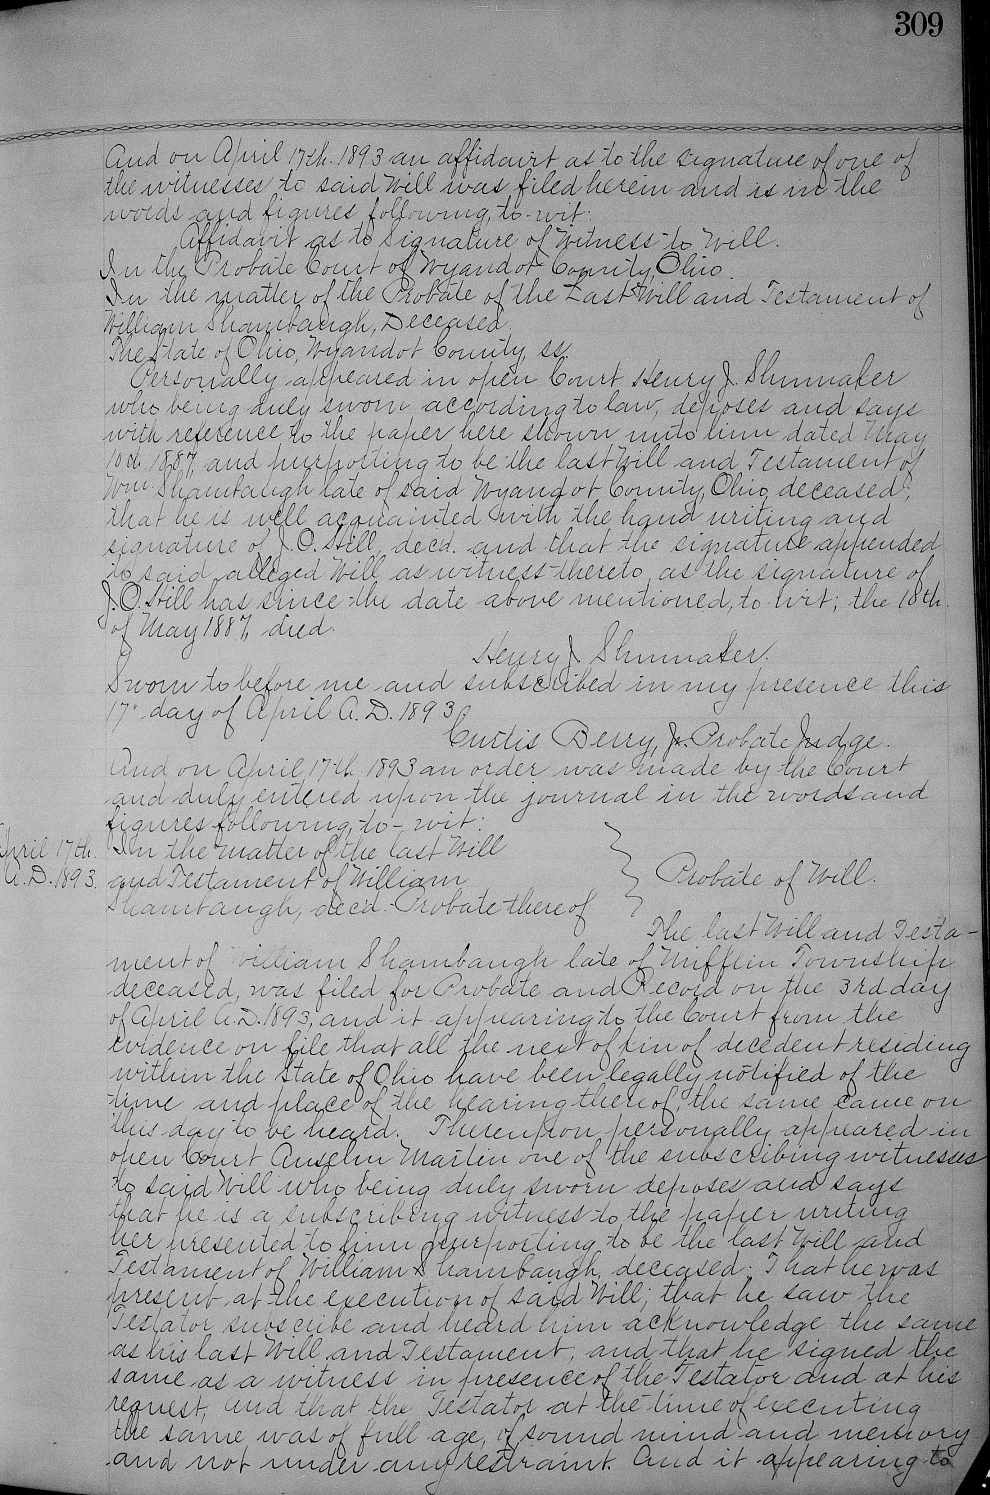 309
And on April 17th. 1893 an affidavit as to the signature of one of
the witnesses to said Will was filed herein and is in the
words and figures following, to-wit:
Affidavit as to Signature of Witness to Will.
In the Probate Court of Wyandot County, Ohio.
In the matter of the Probate of the Last Will and Testament of
William Shambaugh, Deceased.
The State of Ohio, Wyandot County, ss.
Personally appeared in open Court Henry J. Shumaker
who being duly sworn according to law, deposes and says
with reference to the paper here shown unto him dated May
10th. 1887, and purporting to be the last Will and Testament of
Wm. Shambaugh late of said Wyandot County, Ohio, deceased;
that he is well acquainted with the hand writing and
signature of J. O. Still, decd. and that the signature appended
to said alleged Will as witness thereto as the signature of
J. O. Still has since the date above mentioned, to-wit; the 10th.
of May 1887, died.
Henry J. Shumaker.
Sworn to before me and subscribed in my presence this
17" day of April A.D. 1893.
Curtis Berry, Jr. Probate Judge.
And on April 17th. 1893 an order was made by the Court
and duly entered upon the journal in the words and
figures following, to-wit:
April 17th. A.D. 1893.
In the matter of the last Will
and Testament of William
Shambaugh, decd. Probate thereof
Probate of Will.
The last Will and Testa-
ment of William Shambaugh late of Mifflin Township
deceased, was filed for Probate and Record on the 3rd day
of April A.D. 1893, and it appearing to the Court from the
evidence on file that all the next of kin of decedent residing
within the State of Ohio have been legally notified of the
time and place of the hearing thereof; the same came on
this day to be heard. Thereupon personally appeared in
open Court Anselm Martin one of the subscribing witnesses
to said Will who being duly sworn deposes and says
that he is a subscribing witness to the paper writing
her presented to him purporting to be the last Will and
Testament of William Shambaugh, deceased: That he was
present at the execution of said Will; that he saw the
Testator subscribe and heard him acknowledge the same
as his last Will and Testament; and that he signed the
same as a witness in presence of the Testator and at his
request, and that the Testator at the time of executing
the same was of full age, of sound mind and memory
and not under any restraint. And it appearing to